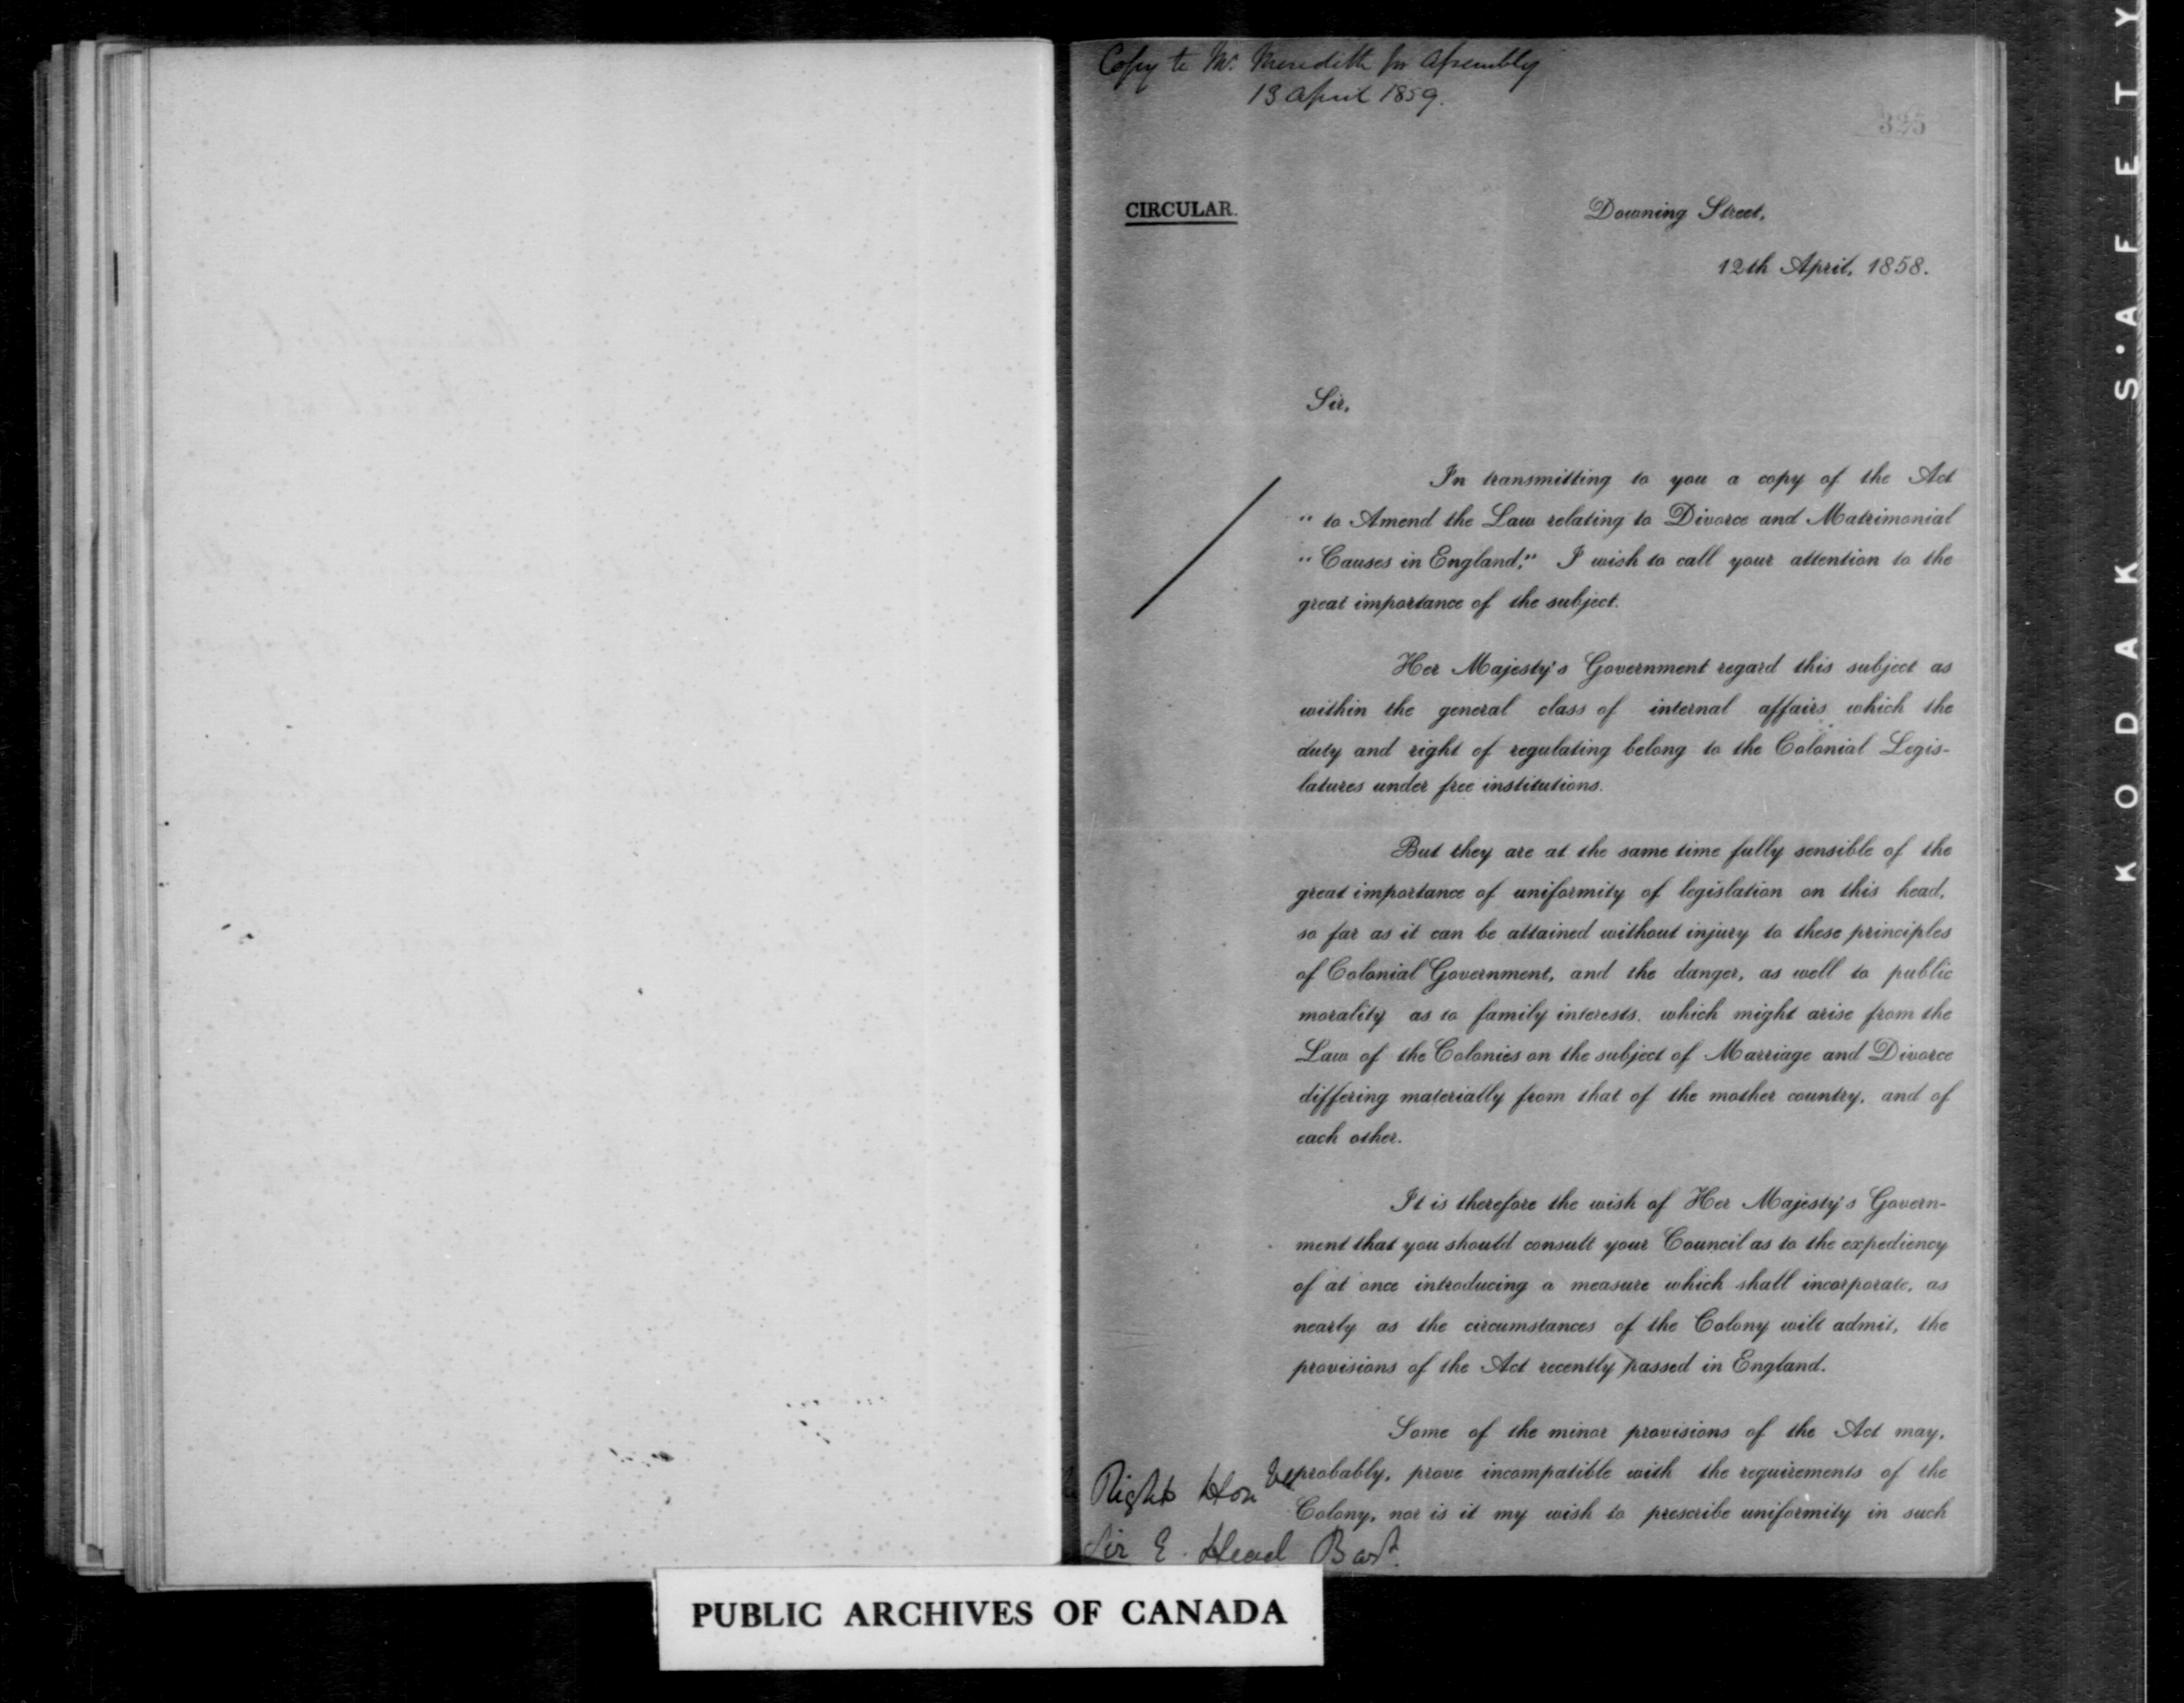 Copy to Mr. Meredith for Assembly
13 April 1859.
325
CIRCULAR.
Downing Street,
12th April, 1858.
Sir,
In transmitting to you a copy of the Act
" to Amend the Law relating to Divorce and Matrimonial
" Causes in England," I wish to call your attention to the
great importance of the subject.
Her Majesty's Government regard this subject as
within the general class of internal affairs which the
duty and right of regulating belong to the Colonial Legis-
latures under free institutions.
But they are at the same time fully sensible of the
great importance of uniformity of legislation on this head,
so far as it can be attained without injury to these principles
of Colonial Government, and the danger, as well to public
morality as to family interests, which might arise from the
Law of the Colonies on the subject of Marriage and Divorce
differing materially from that of the mother country, and of
each other.
It is therefore the wish of Her Majesty's Govern-
ment that you should consult your Council as to the expediency
of at once introducing a measure which shall incorporate, as
nearly as the circumstances of the Colony will admit, the
provisions of the Act recently passed in England.
Some of the minor provisions of the Act may,
probably, prove incompatible with the requirements of the
Colony, nor is it my wish to prescribe uniformity in such
Right Honble
Sir E. Head Bart.
PUBLIC ARCHIVES OF CANADA
KODAK S·AFETY